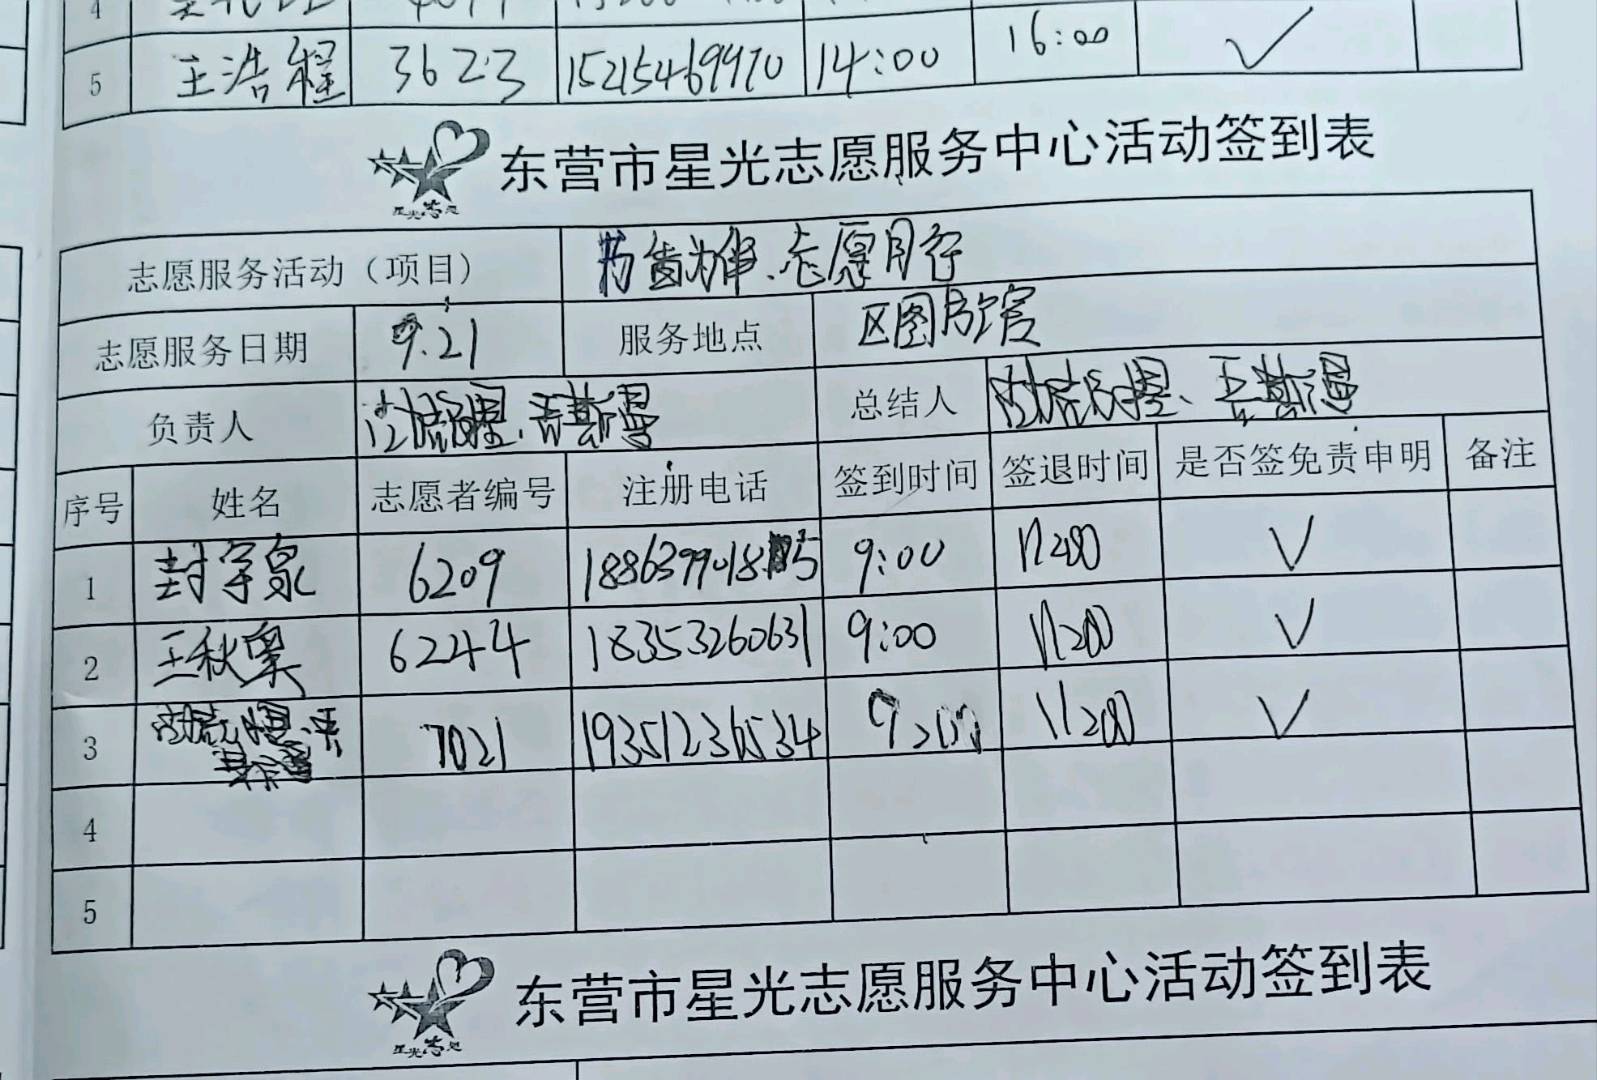 4
5 王浩程 3623 15215469970 14:00 16:00 ✓
东营市星光志愿服务中心活动签到表
星光志愿
志愿服务活动（项目） 志愿同行
志愿服务日期 9.21 服务地点 区图书馆
负责人 总结人
序号 姓名 志愿者编号 注册电话 签到时间 签退时间 是否签免责申明 备注
1 封宇泉 6209 9:00 11:00 ✓
2 王秋 6244 18353260631 9:00 11:00 ✓
3 7021 19351236534 9:00 11:00 ✓
4
5
东营市星光志愿服务中心活动签到表
星光志愿